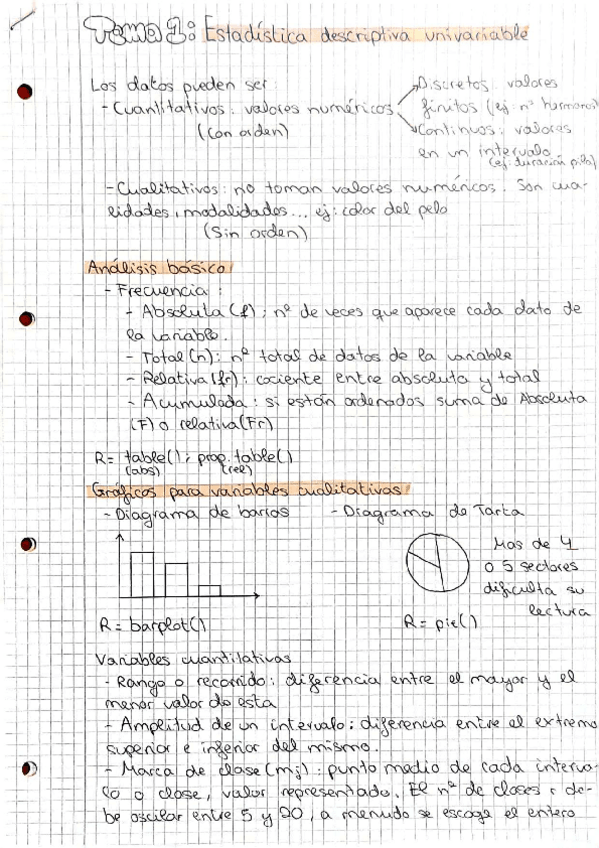 Tema 1: Estadística descriptiva univariable
Los datos pueden ser:
- Cuantitativos: valores numéricos
(con orden)
Discretos: valores
finitos (ej: nº hermanos)
Continuos: valores
en un intervalo
(ej: duración pila)
- Cualitativos: no toman valores numéricos. Son cua-
lidades, modalidades... ej: color del pelo
(Sin orden)
Análisis básico
- Frecuencia:
- Absoluta (f): nº de veces que aparece cada dato de
la variable.
- Total (n): nº total de datos de la variable
- Relativa (fr): cociente entre absoluta y total
- Acumulada: si están ordenados suma de Absoluta
(F) o relativa (Fr)
R = table(); prop.table()
(abs) (rel)
Gráficos para variables cualitativas:
- Diagrama de barras - Diagrama de Tarta
Más de 4
o 5 sectores
dificulta su
lectura
R = barplot() R = pie()
Variables cuantitativas
- Rango o recorrido: diferencia entre el mayor y el
menor valor de esta
- Amplitud de un intervalo: diferencia entre el extremo
superior e inferior del mismo.
- Marca de clase (mj): punto medio de cada interva-
lo o clase, valor representado. El nº de clases de-
be oscilar entre 5 y 20, a menudo se escoge el entero